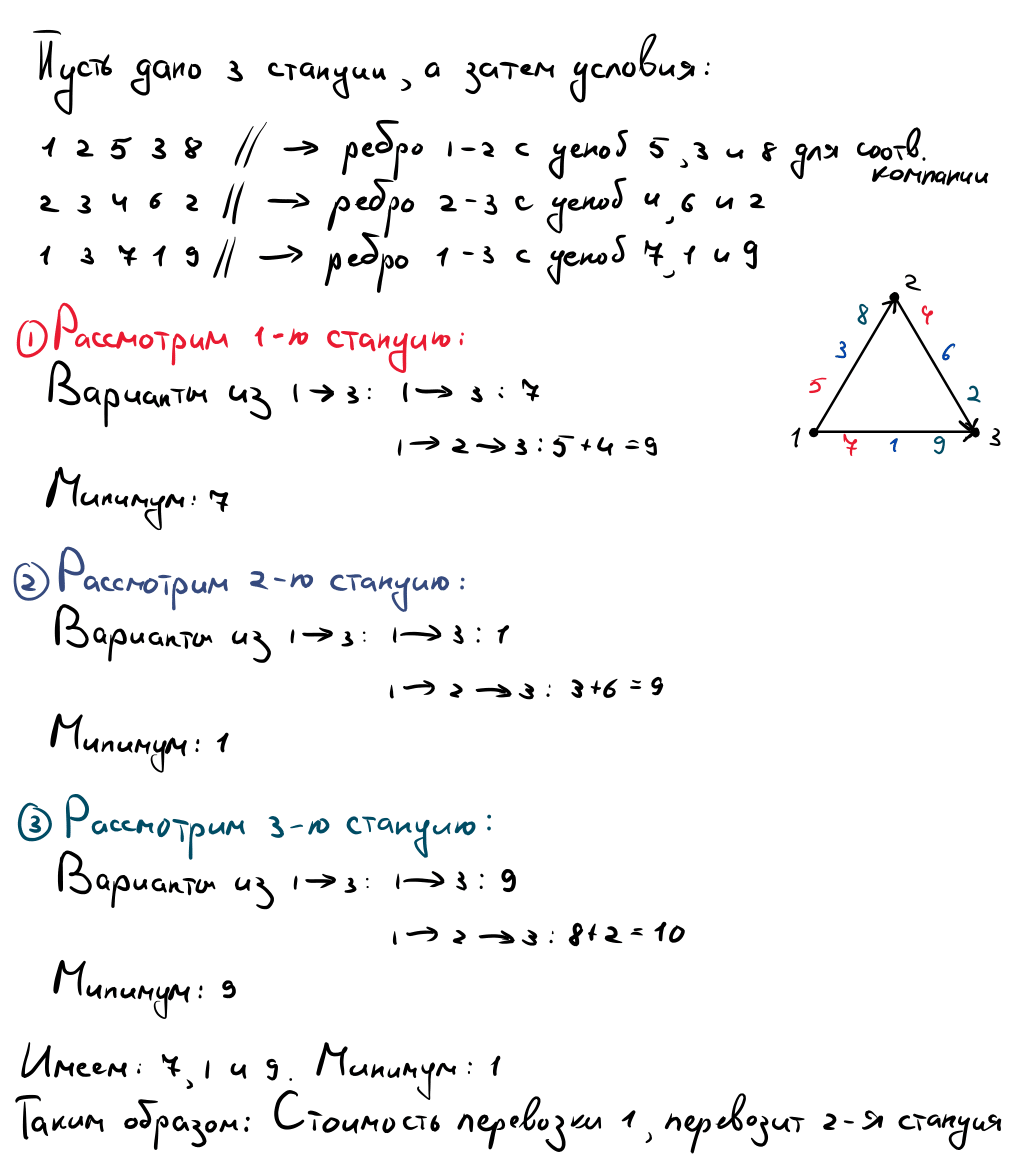 Пусть дано 3 станции, а затем условия:
1 2 5 3 8 // → ребро 1-2 с ценой 5, 3 и 8 для соотв. компании
2 3 4 6 2 // → ребро 2-3 с ценой 4, 6 и 2
1 3 7 1 9 // → ребро 1-3 с ценой 7, 1 и 9
① Рассмотрим 1-ю станцию:
Варианты из 1→3: 1→3: 7
1→2→3: 5+4=9
Минимум: 7
2
8 4
3 6
5 2
1 7 1 9 3
② Рассмотрим 2-ю станцию:
Варианты из 1→3: 1→3: 1
1→2→3: 3+6=9
Минимум: 1
③ Рассмотрим 3-ю станцию:
Варианты из 1→3: 1→3: 9
1→2→3: 8+2=10
Минимум: 9
Имеем: 7, 1 и 9. Минимум: 1
Таким образом: Стоимость перевозки 1, перевозит 2-я станция